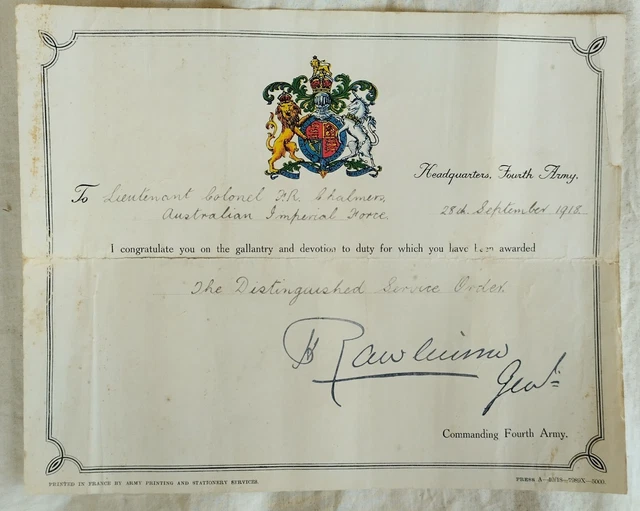 Headquarters, Fourth Army.
To Lieutenant Colonel F.R. Chalmers,
Australian Imperial Force
28th September 1918.
I congratulate you on the gallantry and devotion to duty for which you have been awarded
The Distinguished Service Order
H Rawlinson
Genl
Commanding Fourth Army.
PRINTED IN FRANCE BY ARMY PRINTING AND STATIONERY SERVICES.
PRESS A